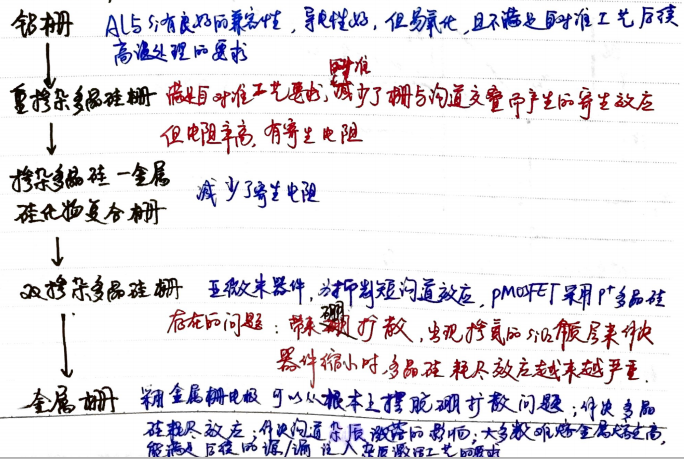 铝栅 AL与Si有良好的兼容性，导电性好，但易氧化，且不满足自对准工艺后续
高温处理的要求
自对准
重掺杂多晶硅栅 满足自对准工艺要求，减少了栅与沟道交叠所产生的寄生效应
但电阻率高，有寄生电阻
掺杂多晶硅—金属
硅化物复合栅 减少了寄生电阻
双掺杂多晶硅栅 亚微米器件，为抑制短沟道效应，PMOSFET采用P+多晶硅
存在的问题：带来硼扩散，出现掺氮的SiO2膜层来解决
器件缩小时，多晶硅耗尽效应越来越严重.
金属栅 采用金属栅电极可以从根本上摆脱硼扩散问题；解决多晶
硅耗尽效应；解决沟道杂质涨落的影响；大多数难熔金属熔点高，
能满足后续的源/漏注入杂质激活工艺的要求